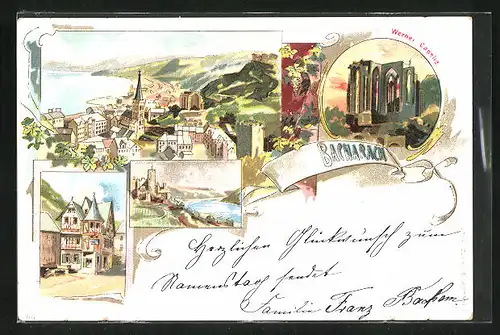 Werner Capelle
BACHARACH
Herzlichen Glückwunsch zum
Namenstag sendet
Familie Franz